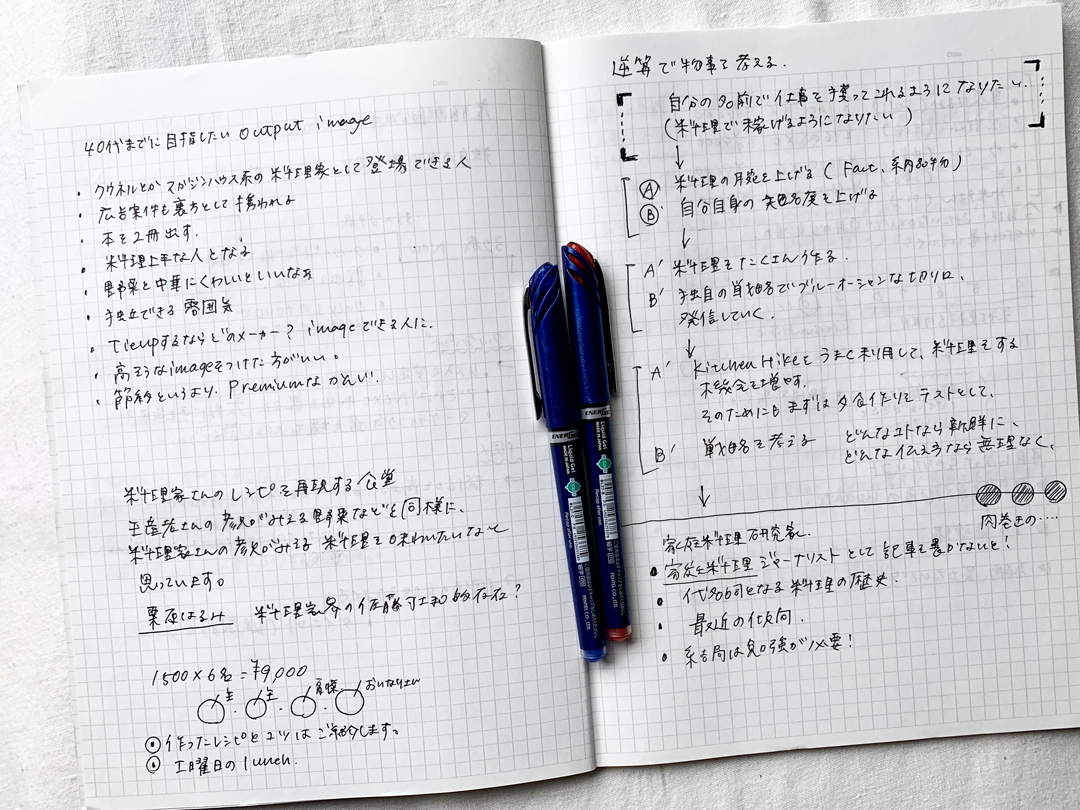 40代までに目指したい output image
・クウネルとか マガジンハウス系の 料理家として登場できる人
・広告案件も裏方として携われる
・本を2冊出す。
・料理上手な人となる
・野菜と中華にくわしいといいなぁ
・独立できる雰囲気
・Tieupするならどのメーカー? imageできる人に。
・高そうなimageをつけた方がいい。
・節約というより、Premiumな かんじ.
料理家さんのレシピを再現する食堂
生産者さんの顔がみえる野菜などと同様に、
料理家さんの顔がみえる 料理を味わいたいなと
思っています。
栗原はるみ 料理家界の佐藤可士和的存在?
1500×6名=¥9,000
主・主・副菜・おいなりさん
作ったレシピとコツは ご紹介します。
土曜日のlunch.
Date
逆算で物事を考える.
自分の名前で仕事を獲ってこれるようになりたい.
(料理で稼げるようになりたい)
↓
Ⓐ 料理の腕を上げる (Fact, 納品物)
Ⓑ 自分自身の知名度を上げる
↓
A' 料理をたくさん作る.
B' 独自の戦略でブルーオーシャンな切り口、
発信していく.
↓
A' Kitchen Hikeをうまく利用して、料理をする
機会を増やす.
そのためにも まずは 夕食作りをテストとして、
B' 戦略を考える どんなコトなら新鮮に、
どんな仕入なら無理なく、
↓
肉巻きの‥‥
家庭料理研究家.
・家庭料理ジャーナリストとして 記事を書かないと!
・代名詞となる 料理の歴史.
・最近の傾向.
・結局は勉強が必要!
ENERGEL
Liquid Gel
MADE IN JAPAN
ENERGEL
Liquid Gel
MADE IN JAPAN